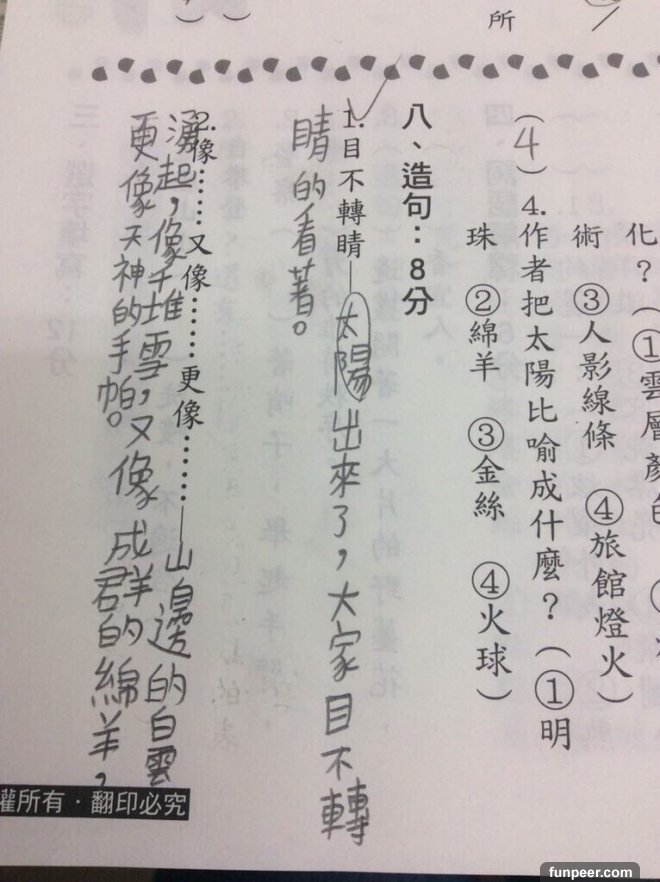 所
化？（①雲層顏
術 ③人影線條 ④旅館燈火）
（4）4.作者把太陽比喻成什麼？（①明
珠 ②綿羊 ③金絲 ④火球）
八、造句：8分
1.目不轉睛—太陽出來了，大家目不轉
睛的看著。
2.像……又像……更像……—山邊的白雲
湧起，像千堆雪，又像成群的綿羊，
更像天神的手帕。
權所有・翻印必究
funpeer.com